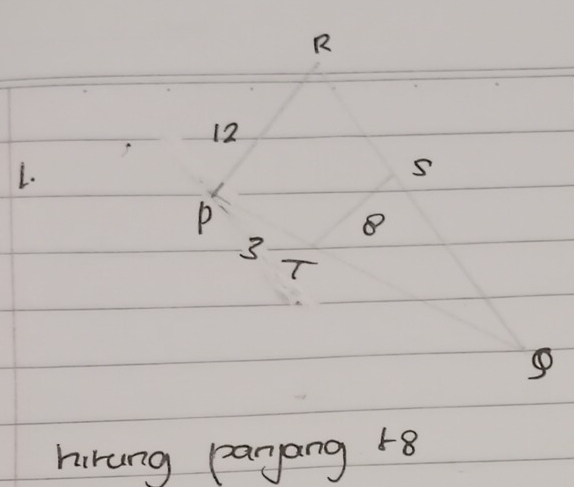 R
12
1.
S
P
8
3
T
Q
hitung panjang t8